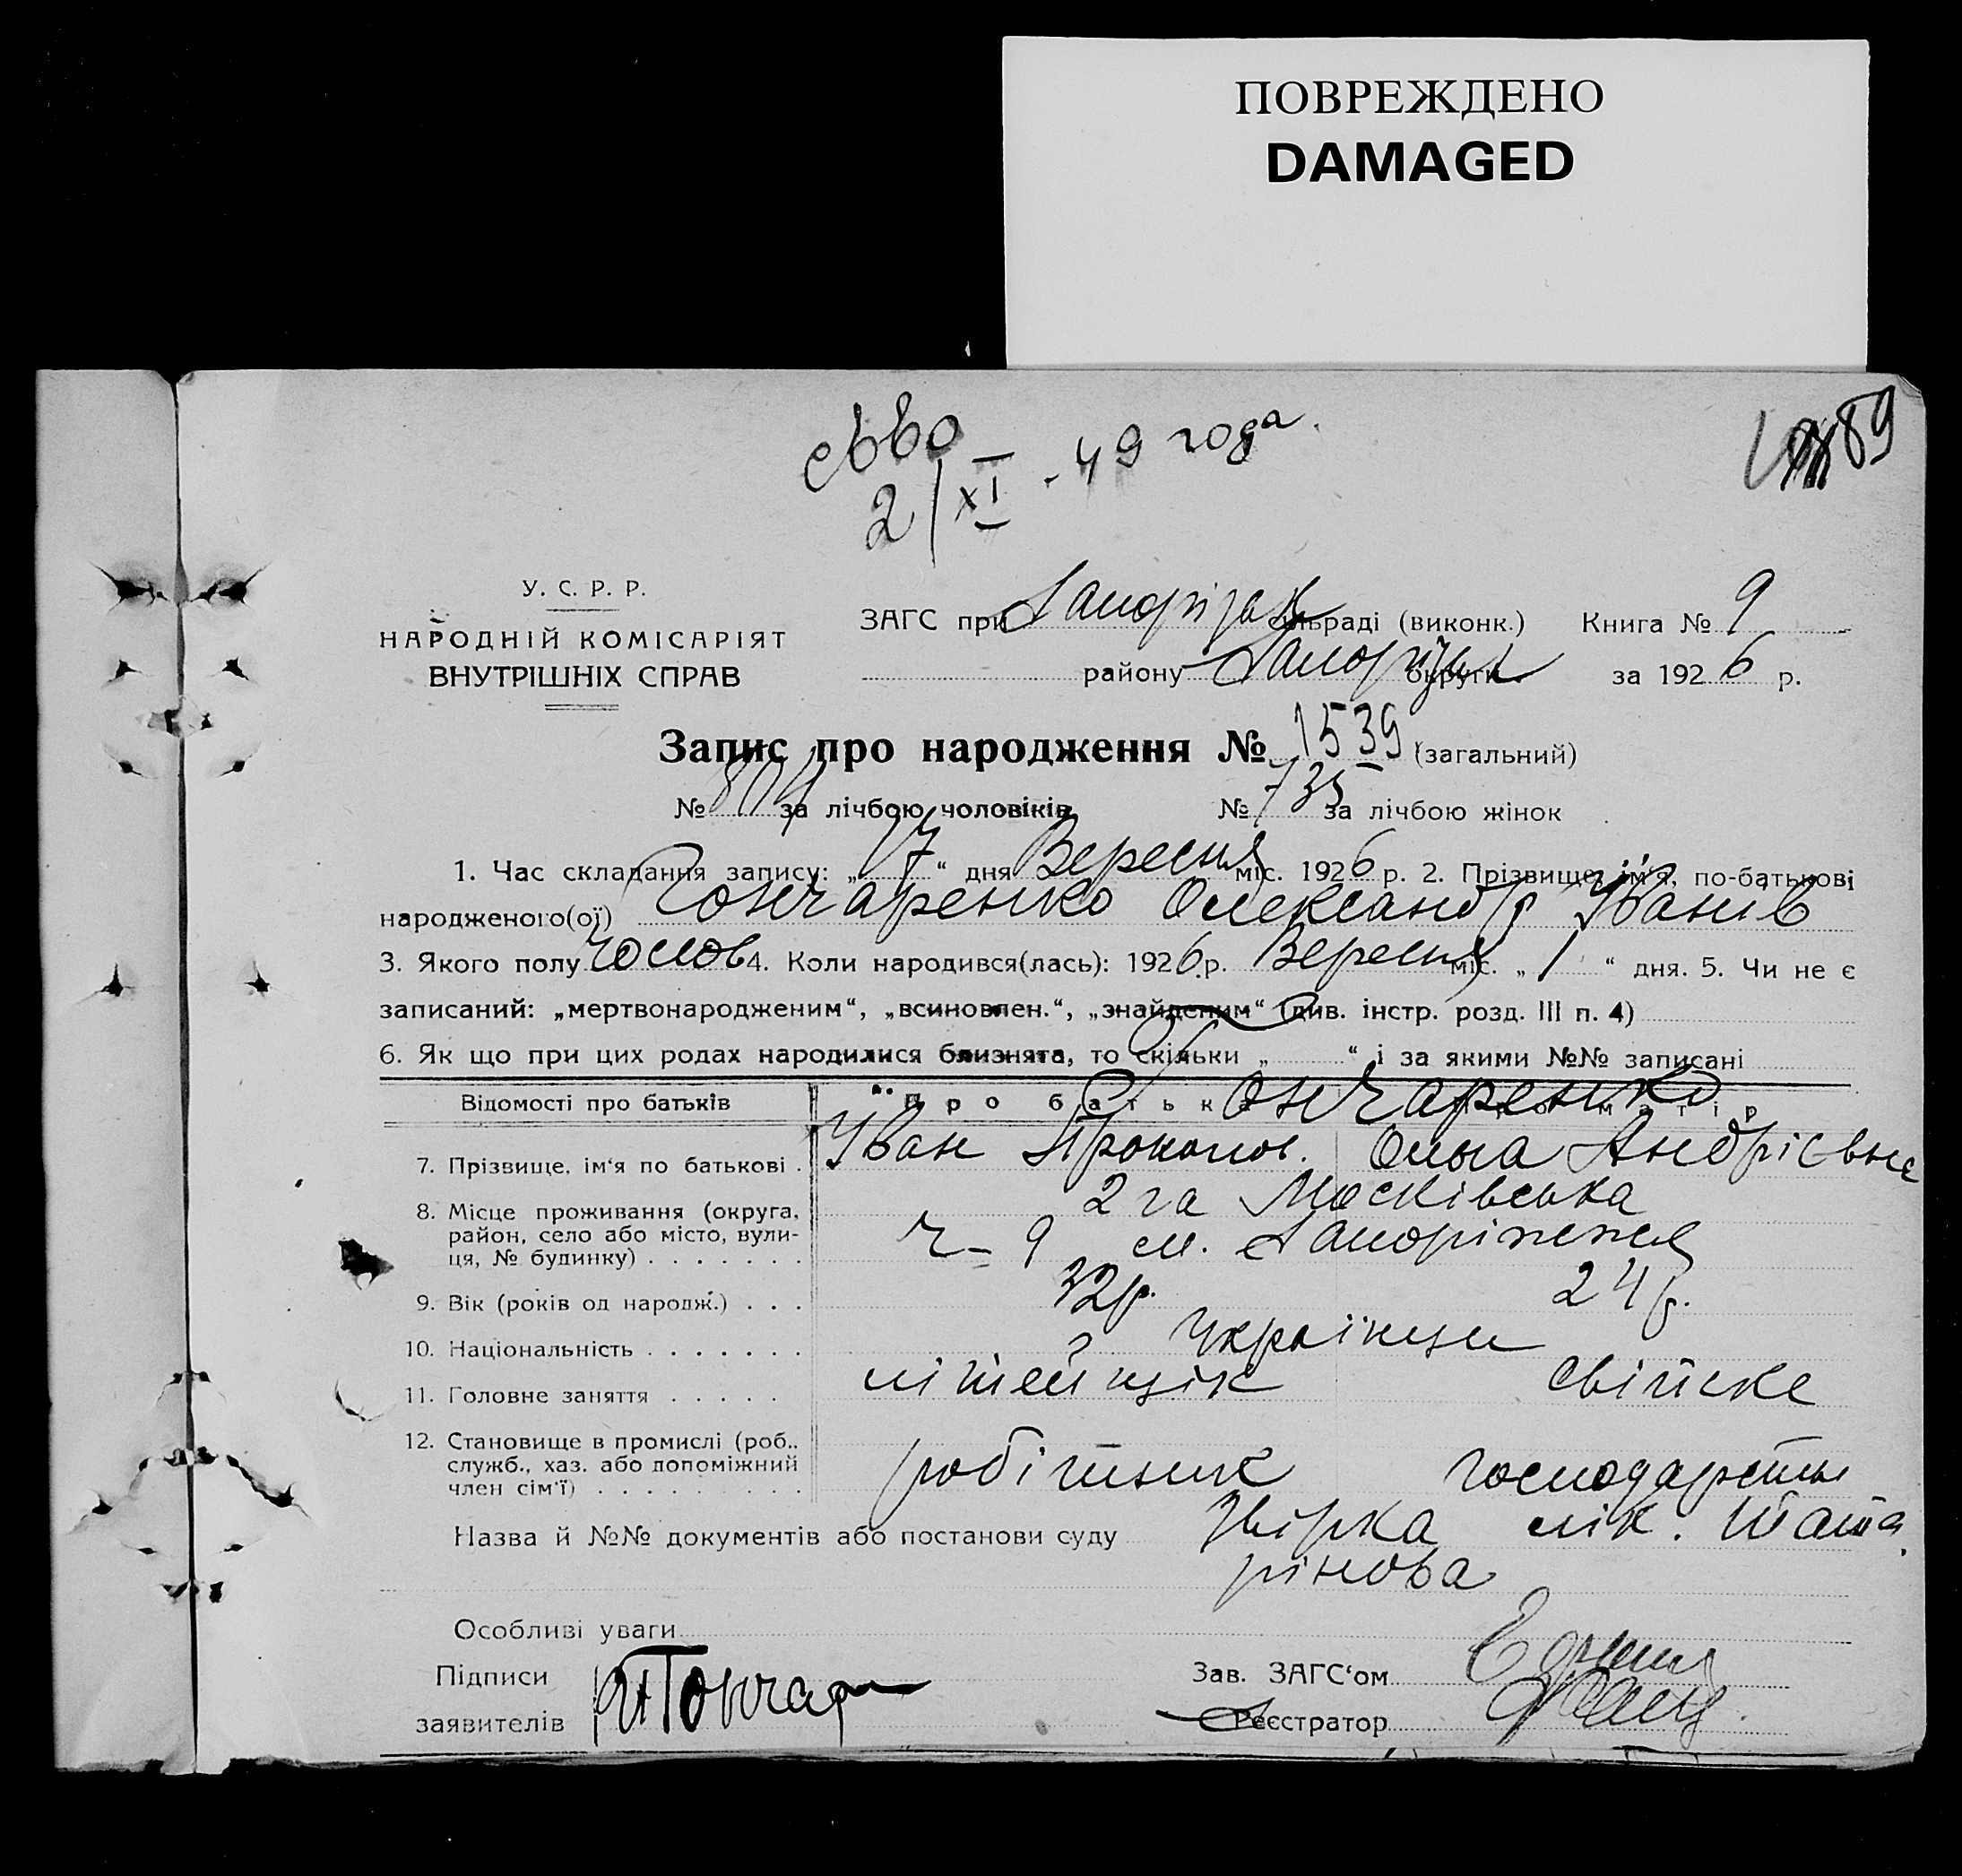 ПОВРЕЖДЕНО
DAMAGED
2/XI - 49 года.
89
У. С. Р. Р.
НАРОДНІЙ КОМІСАРІЯТ
ВНУТРІШНІХ СПРАВ
ЗАГС при Запорізьк раді (виконк.) Книга № 9
району Запорізьк округи за 1926 р.
Запис про народження № 1539 (загальний)
№ 804 за лічбою чоловіків № 735 за лічбою жінок
1. Час складання запису: „17“ дня Вересня міс. 1926 р. 2. Прізвище, ім'я, по-батькові
народженого(ої) Гончаренко Олександр Іванів
3. Якого полу чолов 4. Коли народився(лась): 1926 р. Вересня міс. „1“ дня. 5. Чи не є
записаний: „мертвонародженим“, „всиновлен.“, „знайденим“ (див. інстр. розд. III п. 4)
6. Як що при цих родах народилися близнята, то скільки „ “ і за якими №№ записані
Відомості про батьків Про батька матір
Гончаренко
7. Прізвище, ім'я по батькові . Іван Прокопов. Ольга Андрієвна
8. Місце проживання (округа, 2га Московська
район, село або місто, вули- ч - 9 м. Запоріжжя
ця, № будинку) . . . . . . .
9. Вік (років од народж.) . . . 32 р. 24 р.
10. Національність . . . . . . . Українци
11. Головне заняття . . . . . літейщік свійске
12. Становище в промислі (роб.,
служб., хаз. або допоміжний робітник господарство
член сім'ї) . . . . . . . . .
Назва й №№ документів або постанови суду Звірка лік. Шата
рінова
Особливі уваги
Підписи
заявителів Гончар
Зав. ЗАГС'ом
Реєстратор